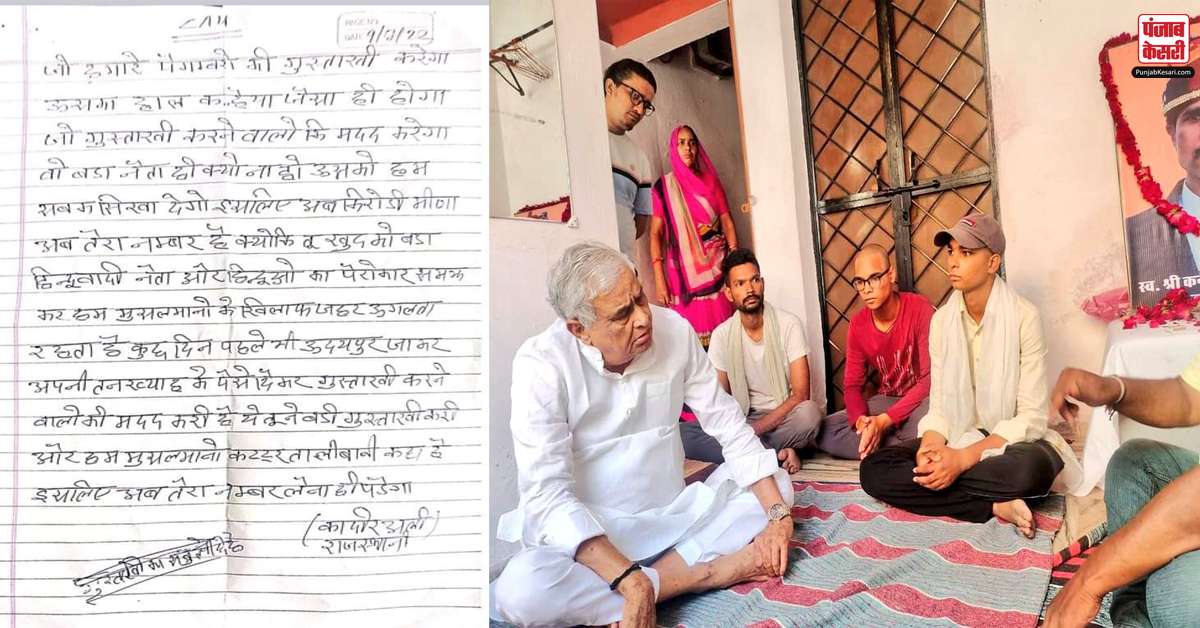 786
PAGE NO.
DATE 9/7/22
जो हमारे पैगम्बरो की गुस्ताखी करेगा
ऊसका हाल कन्हैया जैसा ही होगा
जो गुस्ताखी करने वालो कि मदद करेगा
तो बडा नेता ही क्यो ना हो उसको हम
सबक सिखा देगो इसलिए अब किरोडी मीणा
अब तेरा नम्बर है क्योकि तू खुद को बडा
हिन्दूवादी नेता और हिन्दूओ का पैरोकार समझ
कर हम मुसलमानो के खिलाफ जहर ऊगलता
रहता है कुछ दिन पहले भी उदयपुर जाकर
अपनी तनख्वाह के पैसे देकर गुस्ताखी करने
वालो की मदद करी है ये तूने बडी गुस्ताखी करी
और हम मुसलमानो कट्टर तालीबानी कहा है
इसलिए अब तेरा नम्बर लेना ही पडेगा
(कादीर अली)
राजस्थानी
पंजाब
केसरी
PunjabKesari.com
स्व. श्री कन